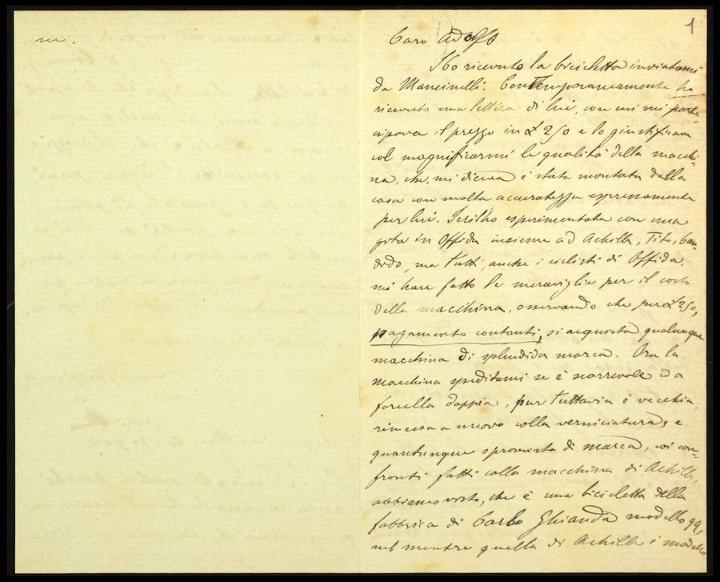 m.
1
Caro Adolfo
Ho ricevuto la bicicletta inviatami
da Mancinelli. Contemporaneamente ho
ricevuto una lettera di lui, con cui mi parte-
cipava il prezzo in £ 250 e lo giustificava
col magnificarmi le qualità della macchi-
na, che, mi diceva è stata montata dalla
casa con molta accuratezza espressamente
per lui. Io l'ho esperimentata con una
gita in Offida insieme ad Achille, Tito, Can-
dido, ma tutti, anche i ciclisti di Offida,
mi han fatto le meraviglie per il costo
della macchina, osservando che per £ 250,
pagamento contanti, si acquista qualunque
macchina di splendida marca. Ora la
macchina speditami se è scorrevole ed a
forcella doppia, pur tuttavia è vecchia,
rimessa a nuovo colla verniciatura, e
quantunque sprovvista di marca, coi con-
fronti fatti colla macchina di Achille,
abbiamo visto, che è una bicicletta della
fabbrica di Carlo Ghianda modello 99,
nel mentre quella di Achille è modello